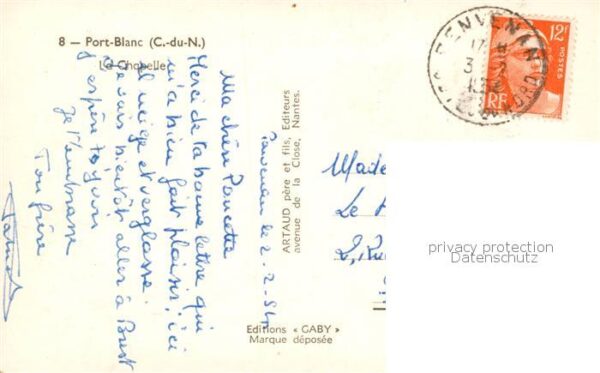 8 — Port-Blanc (C.-du-N.)
La Chapelle
PENVENAN
17 H
3
12F
POSTES
RF
Penvenan le 2-2-54
Ma chère Poucette
Merci de ta bonne lettre qui
m'a bien fait plaisir, ici
il neige et verglasse.
Je vais bientôt aller à Brest
j'espère t'y voir
Je t'embrasse
Ton frère
ARTAUD père et fils, Editeurs
avenue de la Close, Nantes.
Editions « GABY »
Marque déposée
Made
Le
2, Ru
privacy protection
Datenschutz